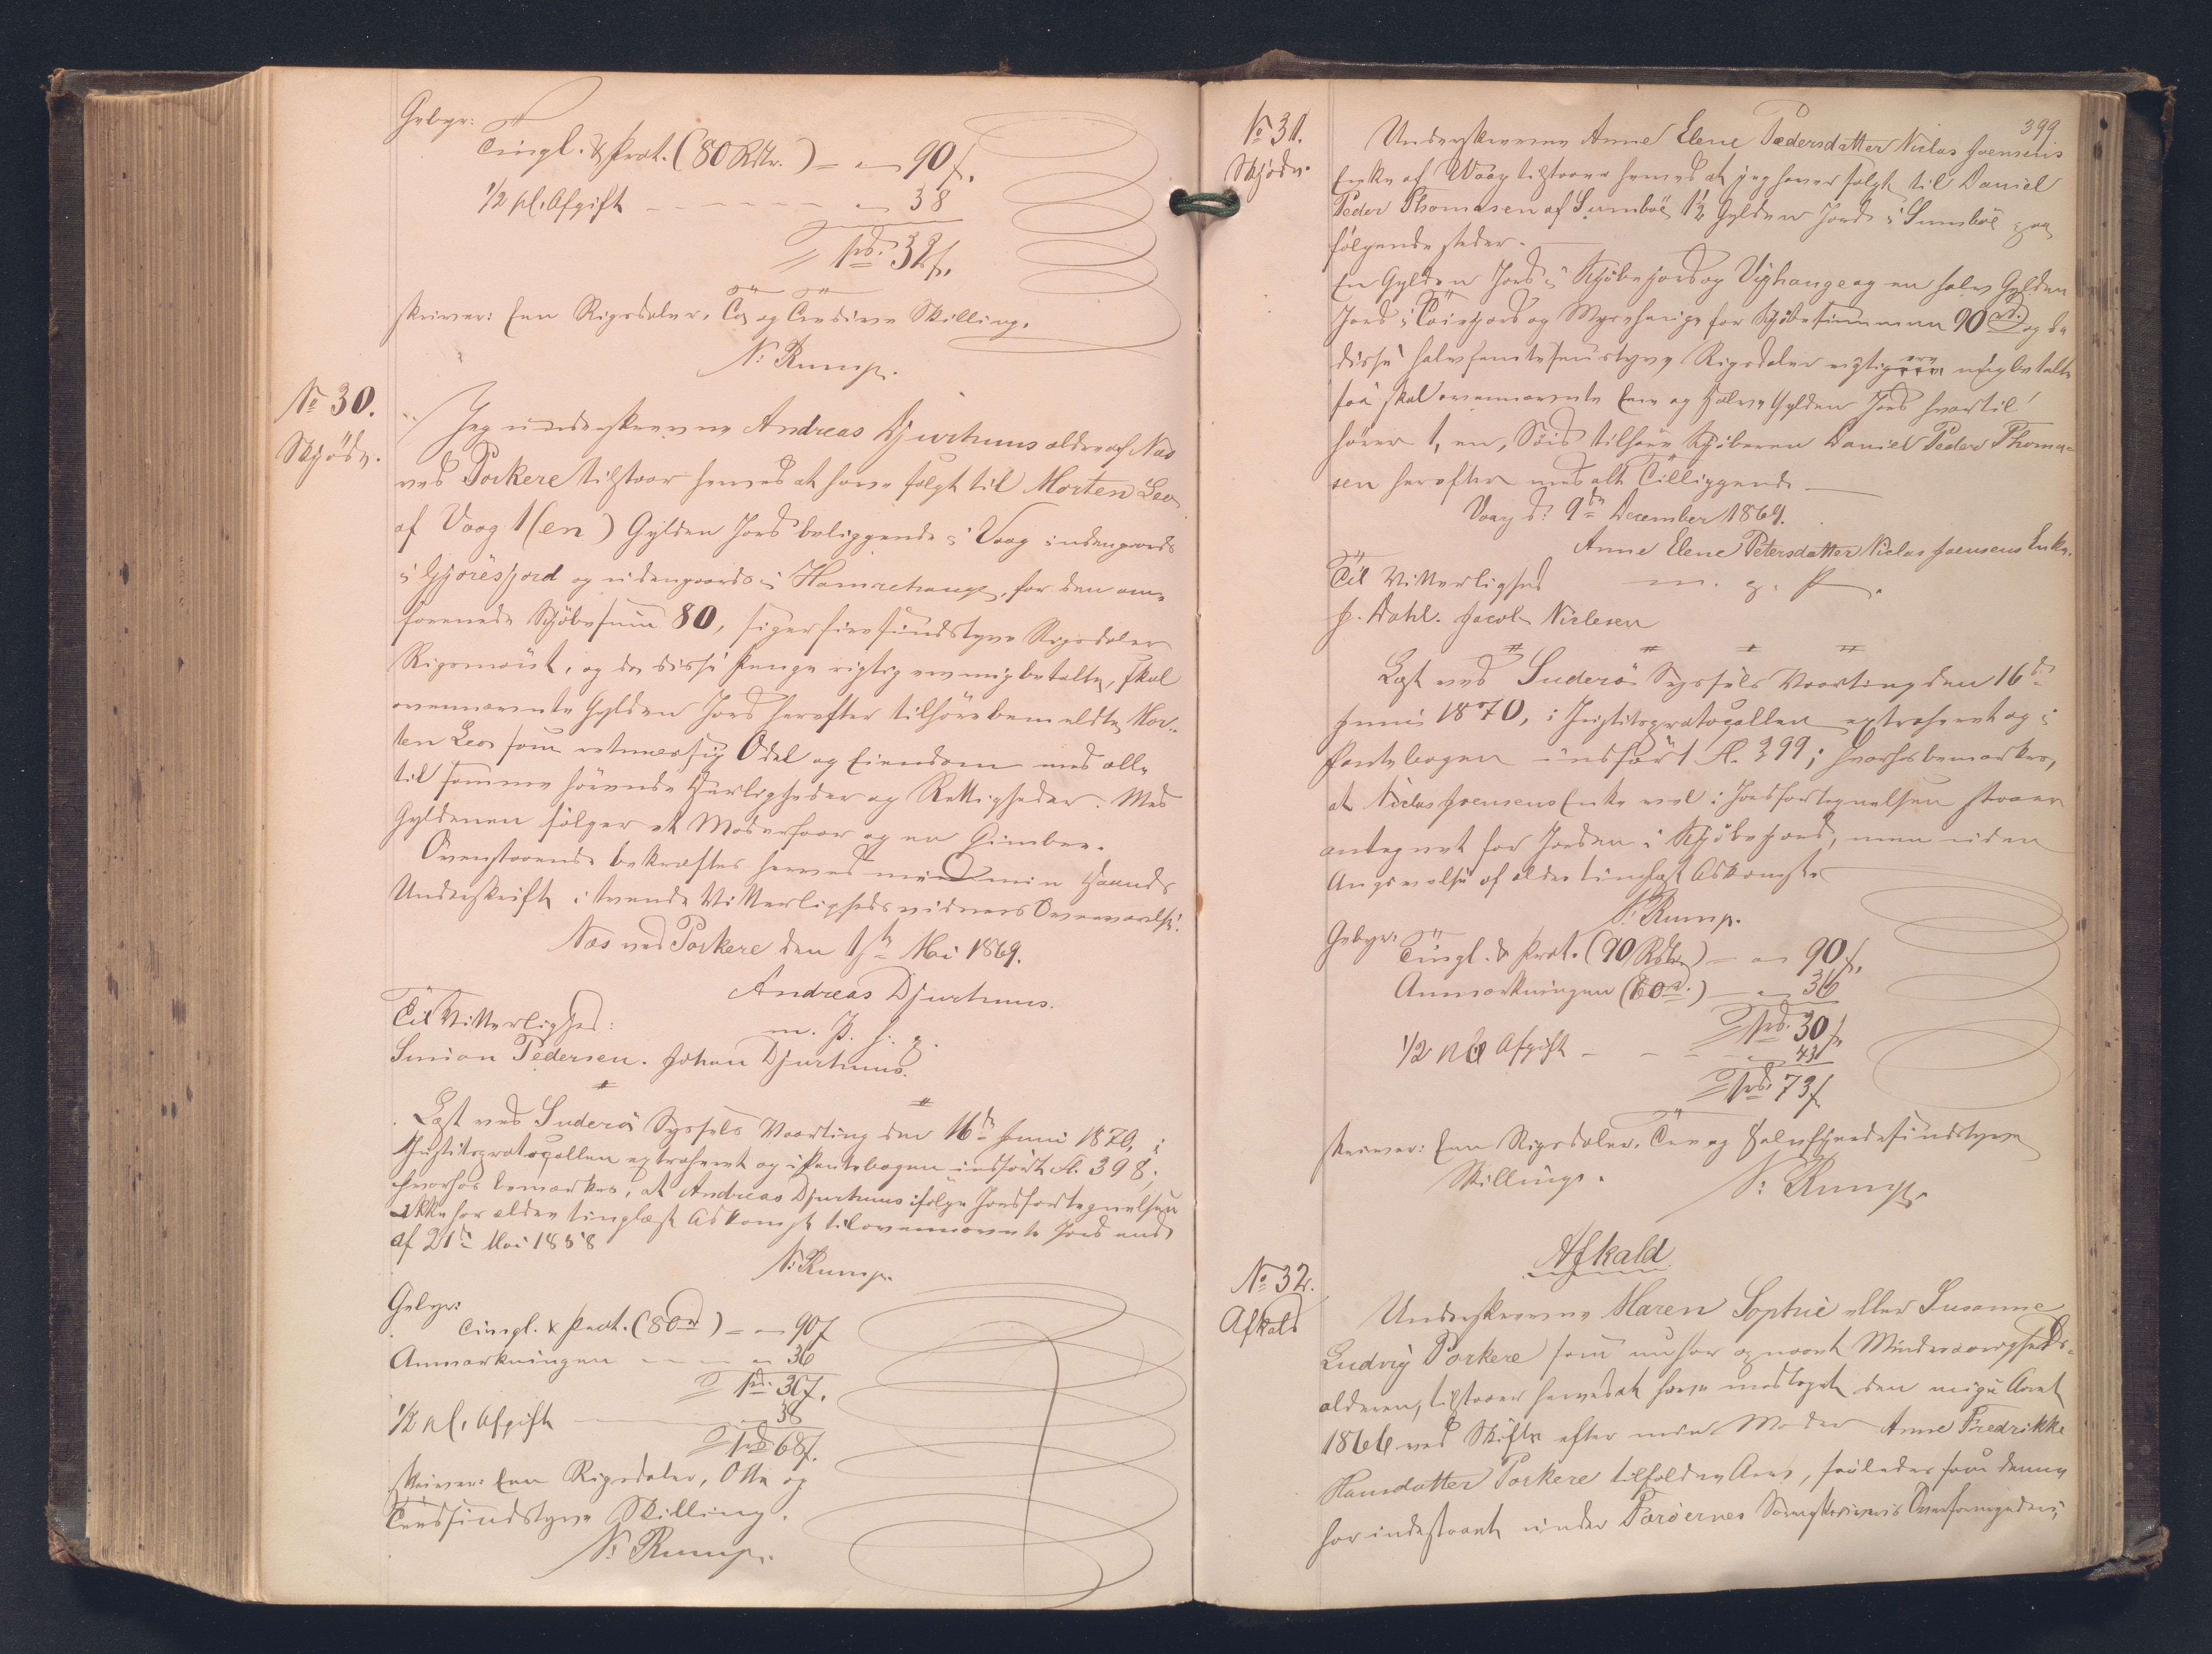 Gebyr:
Tingl. & Prot. (80 Rdlr.) = " 90 ß.
1/2 pCt. Afgift " 38
= 1 rd. 32 ß.
skriver: Een Rigsdaler, To og Tredive Skilling.
N: Rump.
No 30.
Skjöde.
Jeg underskrevne Andreas Djurhuus ældre af Næs
ved Porkere tilstaar herved at have solgt til Morten Leo
af Vaag 1 (en) Gylden Jord beliggende i Vaag indengaards
i Gjöresjord og udengaards i Hamrehauge, for den om-
forenede Kjöbesum 80, siger firesindstyve Rigsdaler
Rigsmönt, og da disse Penge rigtig ere mig betalte, skal
ovennævnte Gylden Jord herefter tilhöre bemeldte Mor-
ten Leo som retmæssig Odel og Eiendom med alle
til samme hörende Herligheder og Rettigheder. Med
Gyldenen fölger et Moderfaar og en Gimber.
Ovenstaaende bekræftes herved med min Haands
Underskrift i tvende Vitterlighedsvidners Overværelse.
Næs ved Porkere den 1ste Mai 1869.
Andreas Djurhuus.
Til Vitterlighed:
m. P. f: g.
Simon Pedersen. Johan Djurhuus.
Læst ved Suderö Syssels Vaarting den 16de Juni 1870, i
Justitsprotocollen extraheret og i Pantebogen indfört fl. 398;
hvorhos bemærkes, at Andreas Djurhuus ifölge Jordfortegnelsen
ikke har anden tinglæst Adkomst til ovennævnte Jord end
af 21de Mai 1858
N: Rump.
Gebyr:
Tingl. & Prot. (80 rd) = " 90 ß
Anmærkningen " 36
= 1 rd. 30 ß.
1/2 pCt. Afgift 38
= 1 rd. 68 ß.
skriver: Een Rigsdaler, Otte og
Tredsindstyve Skilling.
N: Rump.
399
No 31.
Skjöde.
Underskrevne Anne Elene Pedersdatter Niclas Joensens
Enke af Waag tilstaaer herved at jeg haver solgt til Daniel
Peder Thomasen af Sumböe 1½ Gylden Jord i Sumböe paa
fölgende steder.
En Gylden Jord i Kjöbejord og Vighauge og en halv Gylden
Jord i og Myrehauge for Kjöbesummen 90 rd. og da
disse halvfemtesinstyve Rigsdaler rigtig ere mig betalte
saa skal ovennævnte Een og Halv Gylden Jord hvortil
hörer 1, en, Söid tilhöre Kjöberen Daniel Peder Thoma-
sen herefter med alt Tilliggende
Vaag d. 9de December 1869.
Anne Elene Petersdatter Niclas Joensens Enke.
Til Vitterlighed m. g. P.
J. Dahl. Jacob Nielsen
Læst ved Suderö Syssels Vaarting den 16de
Juni 1870, i Justitsprotocollen extraheret og i
Pantebogen indfört fl. 399; hvorhos bemærkes,
at Niclas Joensens Enke vel i Jordfortegnelsen staaer
antegnet for Jorden i Kjöbejord, men uden
Angivelse af anden tinglæst Adkomst.
N: Rump.
Gebyr:
Tingl. & Prot. (90 Rdlr.) = " 90 ß.
Anmærkningen (60 rd.) " 36
= 1 rd. 30 ß
1/2 pCt Afgift " 43
= 1 rd. 73 ß
skriver: Een Rigsdaler, Tre og Halvfjerdesindstyve
Skilling.
N: Rump.
Afkald
No 32.
Afkald
Underskrevne Maren Sophie eller Susanne
Ludvig Porkere som nu har opnaaet Mindreaarigheds-
alderen, tilstaaer herved at have modtaget den mig i Aaret
1866 ved Skifte efter min Moder Anne Fredrikke
Hansdatter Porkere tilfaldne Arv, saaledes som denne
har indestaaet under Færöernes Sorenskriveries Overformynderi;